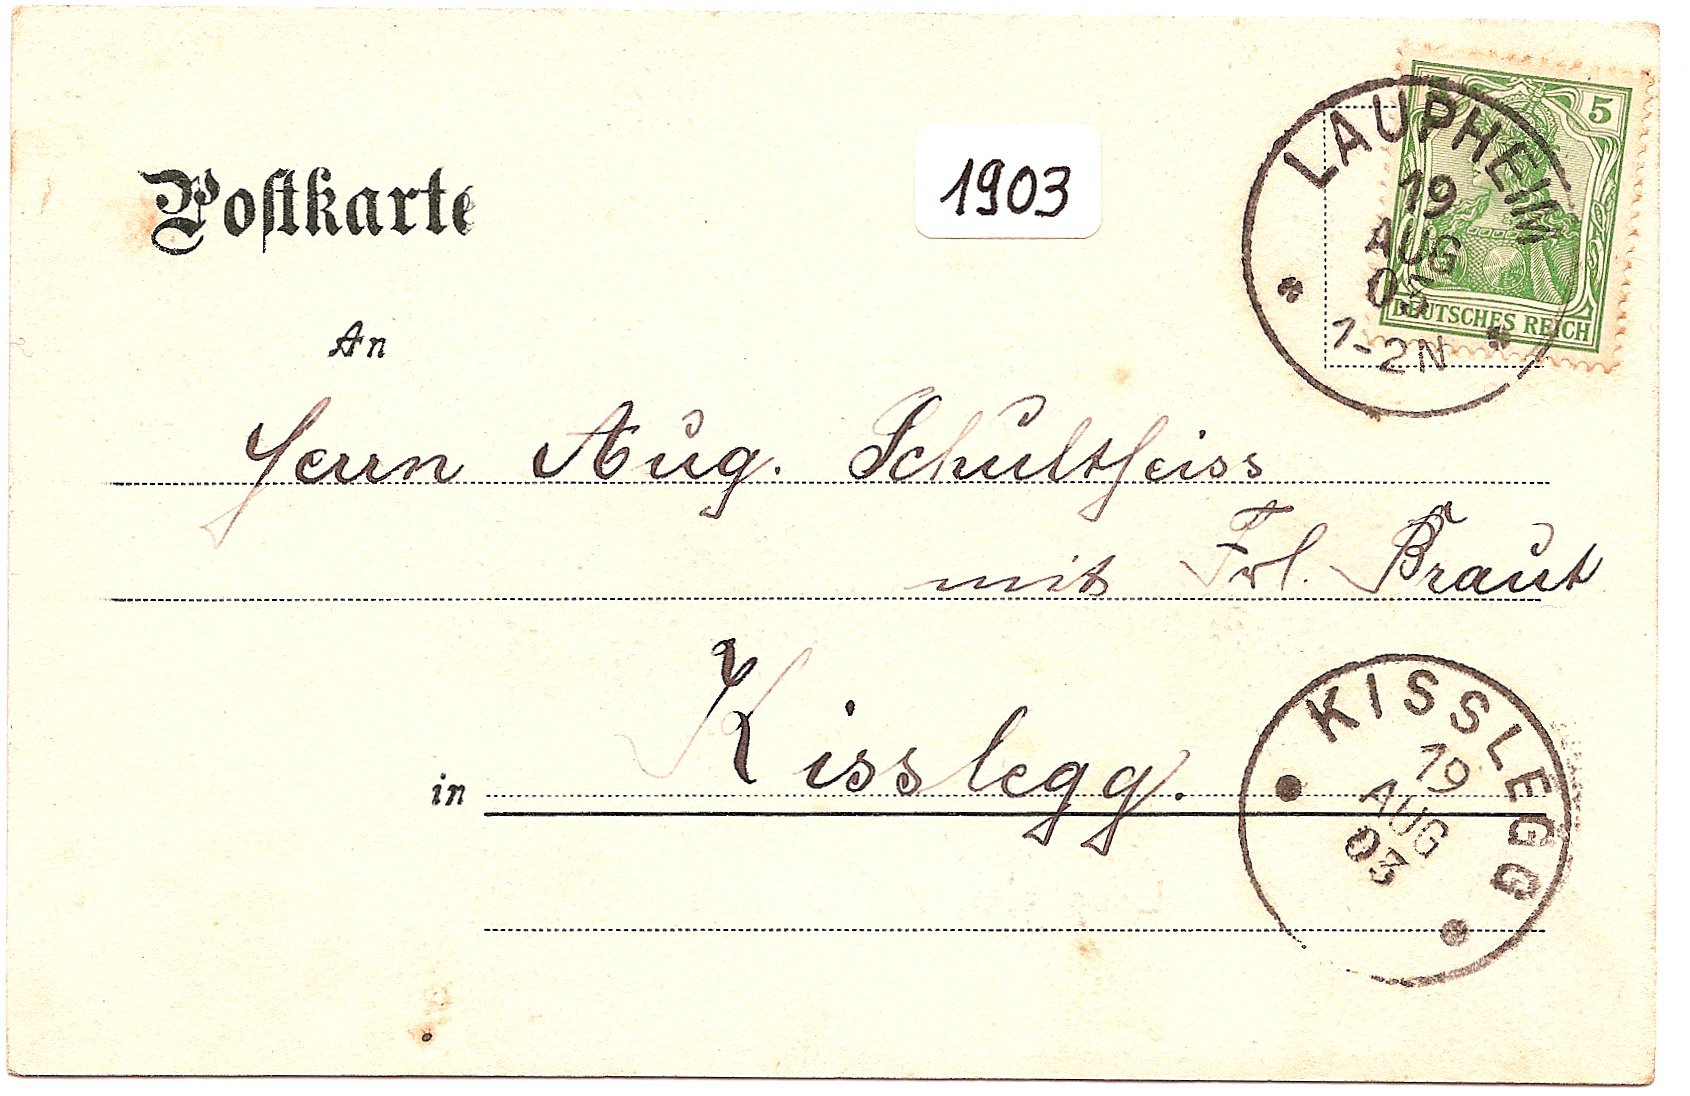 Postkarte
1903
5
DEUTSCHES REICH
LAUPHEIM
19
AUG
03
1-2N
An
Herrn Aug. Schultheiss
mit Frl. Braut
in Kisslegg.
KISSLEGG
19
AUG
03